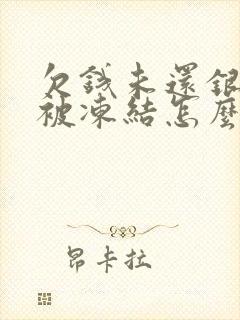 欠錢未還銀
被凍結怎麼
昂卡拉